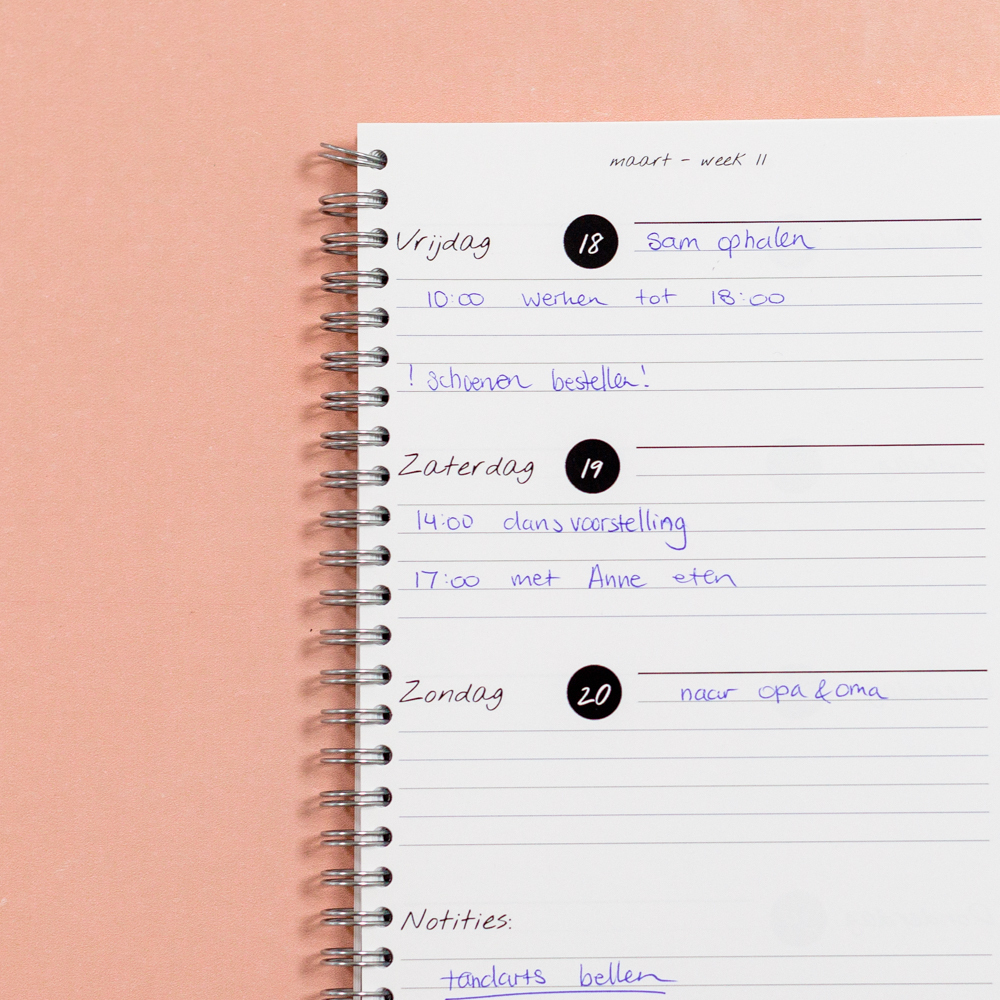 maart - week 11
Vrijdag 18 Sam ophalen
10:00 werken tot 18:00
! schoenen bestellen!
Zaterdag 19
14:00 dansvoorstelling
17:00 met Anne eten
Zondag 20 naar opa & oma
Notities:
tandarts bellen